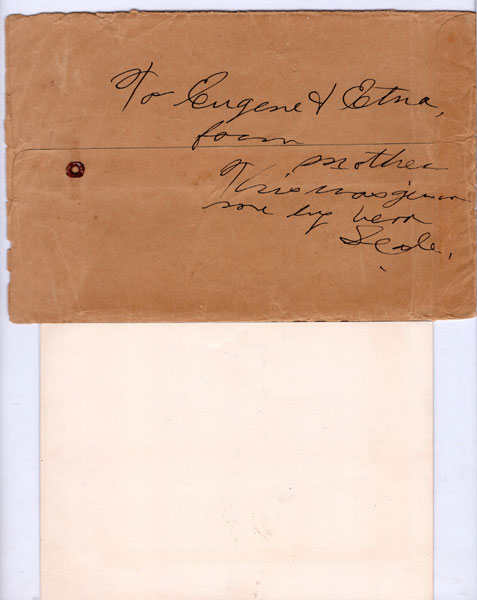 To Eugene & Etna,
from
Mother
This was given
me by Vera